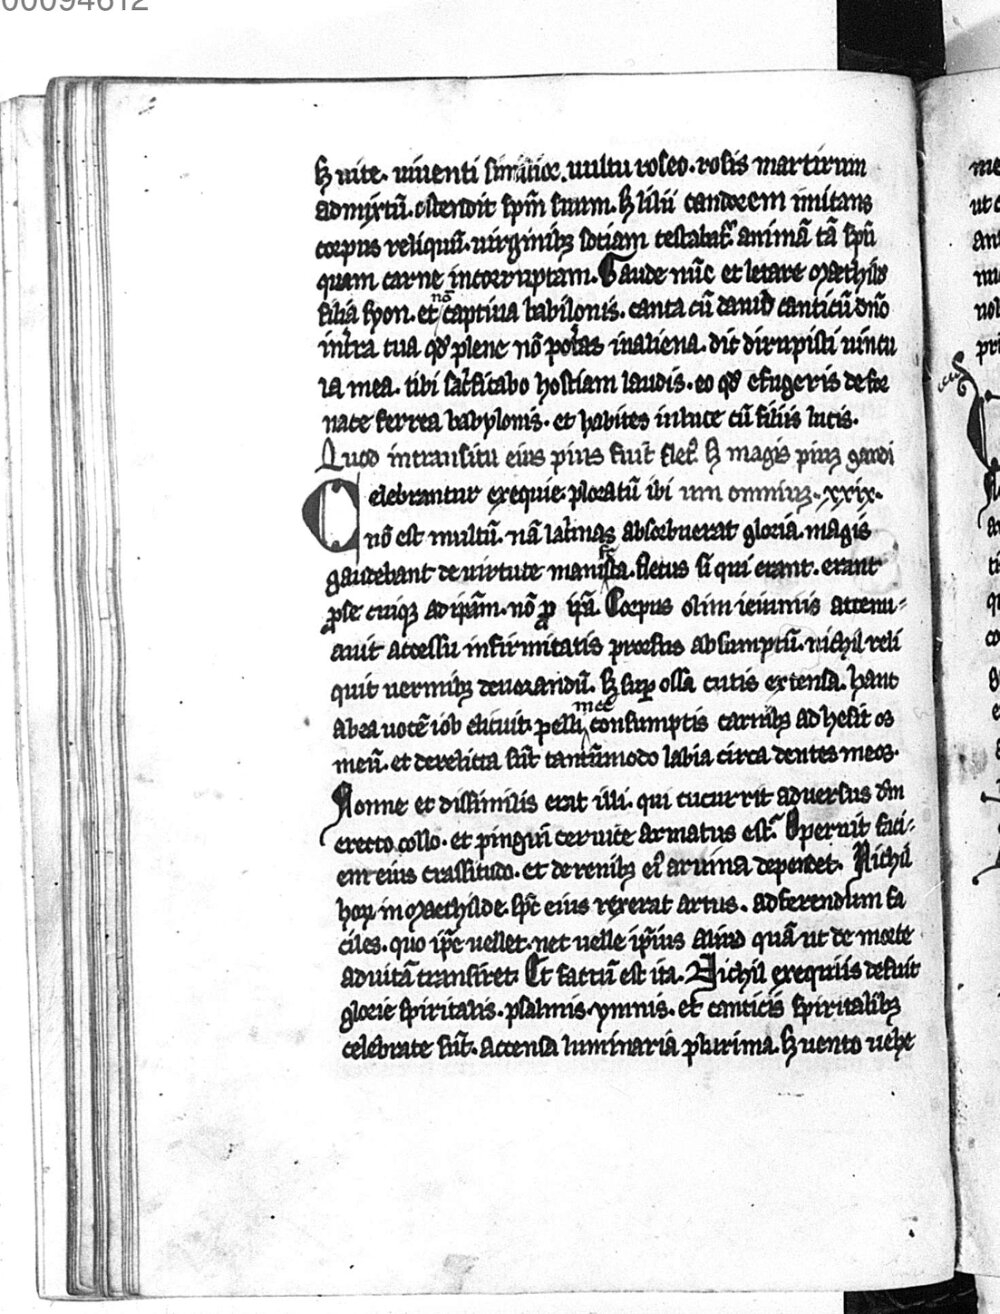 00094612
ꝫ uite. uiuenti similior. uultu roseo. rosis martirum
admixtū. ostendit spm̄ suum. ꝫ lilii candorem imitans
corpus reliquū. uirginibꝫ sotiam testabat᷑ animā tā spū
quam carne incorruptam. Gaude nūc et letare mæthild
filia syon. et nō captiua babilonis. canta cū dauid canticū dn̄o
in terra tua qd̓ plene nō poteras in aliena. dic dirupisti uincu
la mea. tibi sacrificabo hostiam laudis. eo qd̓ effugeris de for
nace ferrea babylonis. et habites in luce cū filiis lucis.
Quod in transitu eius pius fuit flet᷒. ꝫ magis piū gaudi
Celebrantur exequie. ploratū ibi um omnium. xxix.
nō est multū. nā lacrimas absorbuerat gloria. magis
gaudebant de uirtute manifesta. fletus si qui erant. erant
ꝓ se cuiqꝫ ad ipām. nō ꝓ ipā. Corpus olim ieiuniis attenu-
auit accessu infirmitatis prorsus absumptū. nichil reli
quit uermibꝫ deuorandū. ꝫ suꝑ ossa cutis extensa. hanc
ab ea uocē iob elicuit. pelli mee consumptis carnibꝫ adhesit os
meū. et derelicta sūt tantūmodo labia circa dentes meos.
Nonne et dissimilis erat illi. qui cucurrit aduersus dm̄
erecto collo. et pingui ceruice armatus est. Operuit faci-
em eius crassitudo. et de renibꝫ ei᷒ aruina dependet. Nichil
hoꝝ in mæthilde. spc eius rexerat artus. ad ferendum fa
ciles. quo ipē uellet. nec uelle ipīus aliud quā ut de morte
ad uitā transiret. Et factū est ita. Nichil exequiis defuit
glorie spiritalis. psalmis. ymnis. et canticis spiritalibꝫ
celebrate sūt. accensa luminaria plurima. ꝫ uento uehe